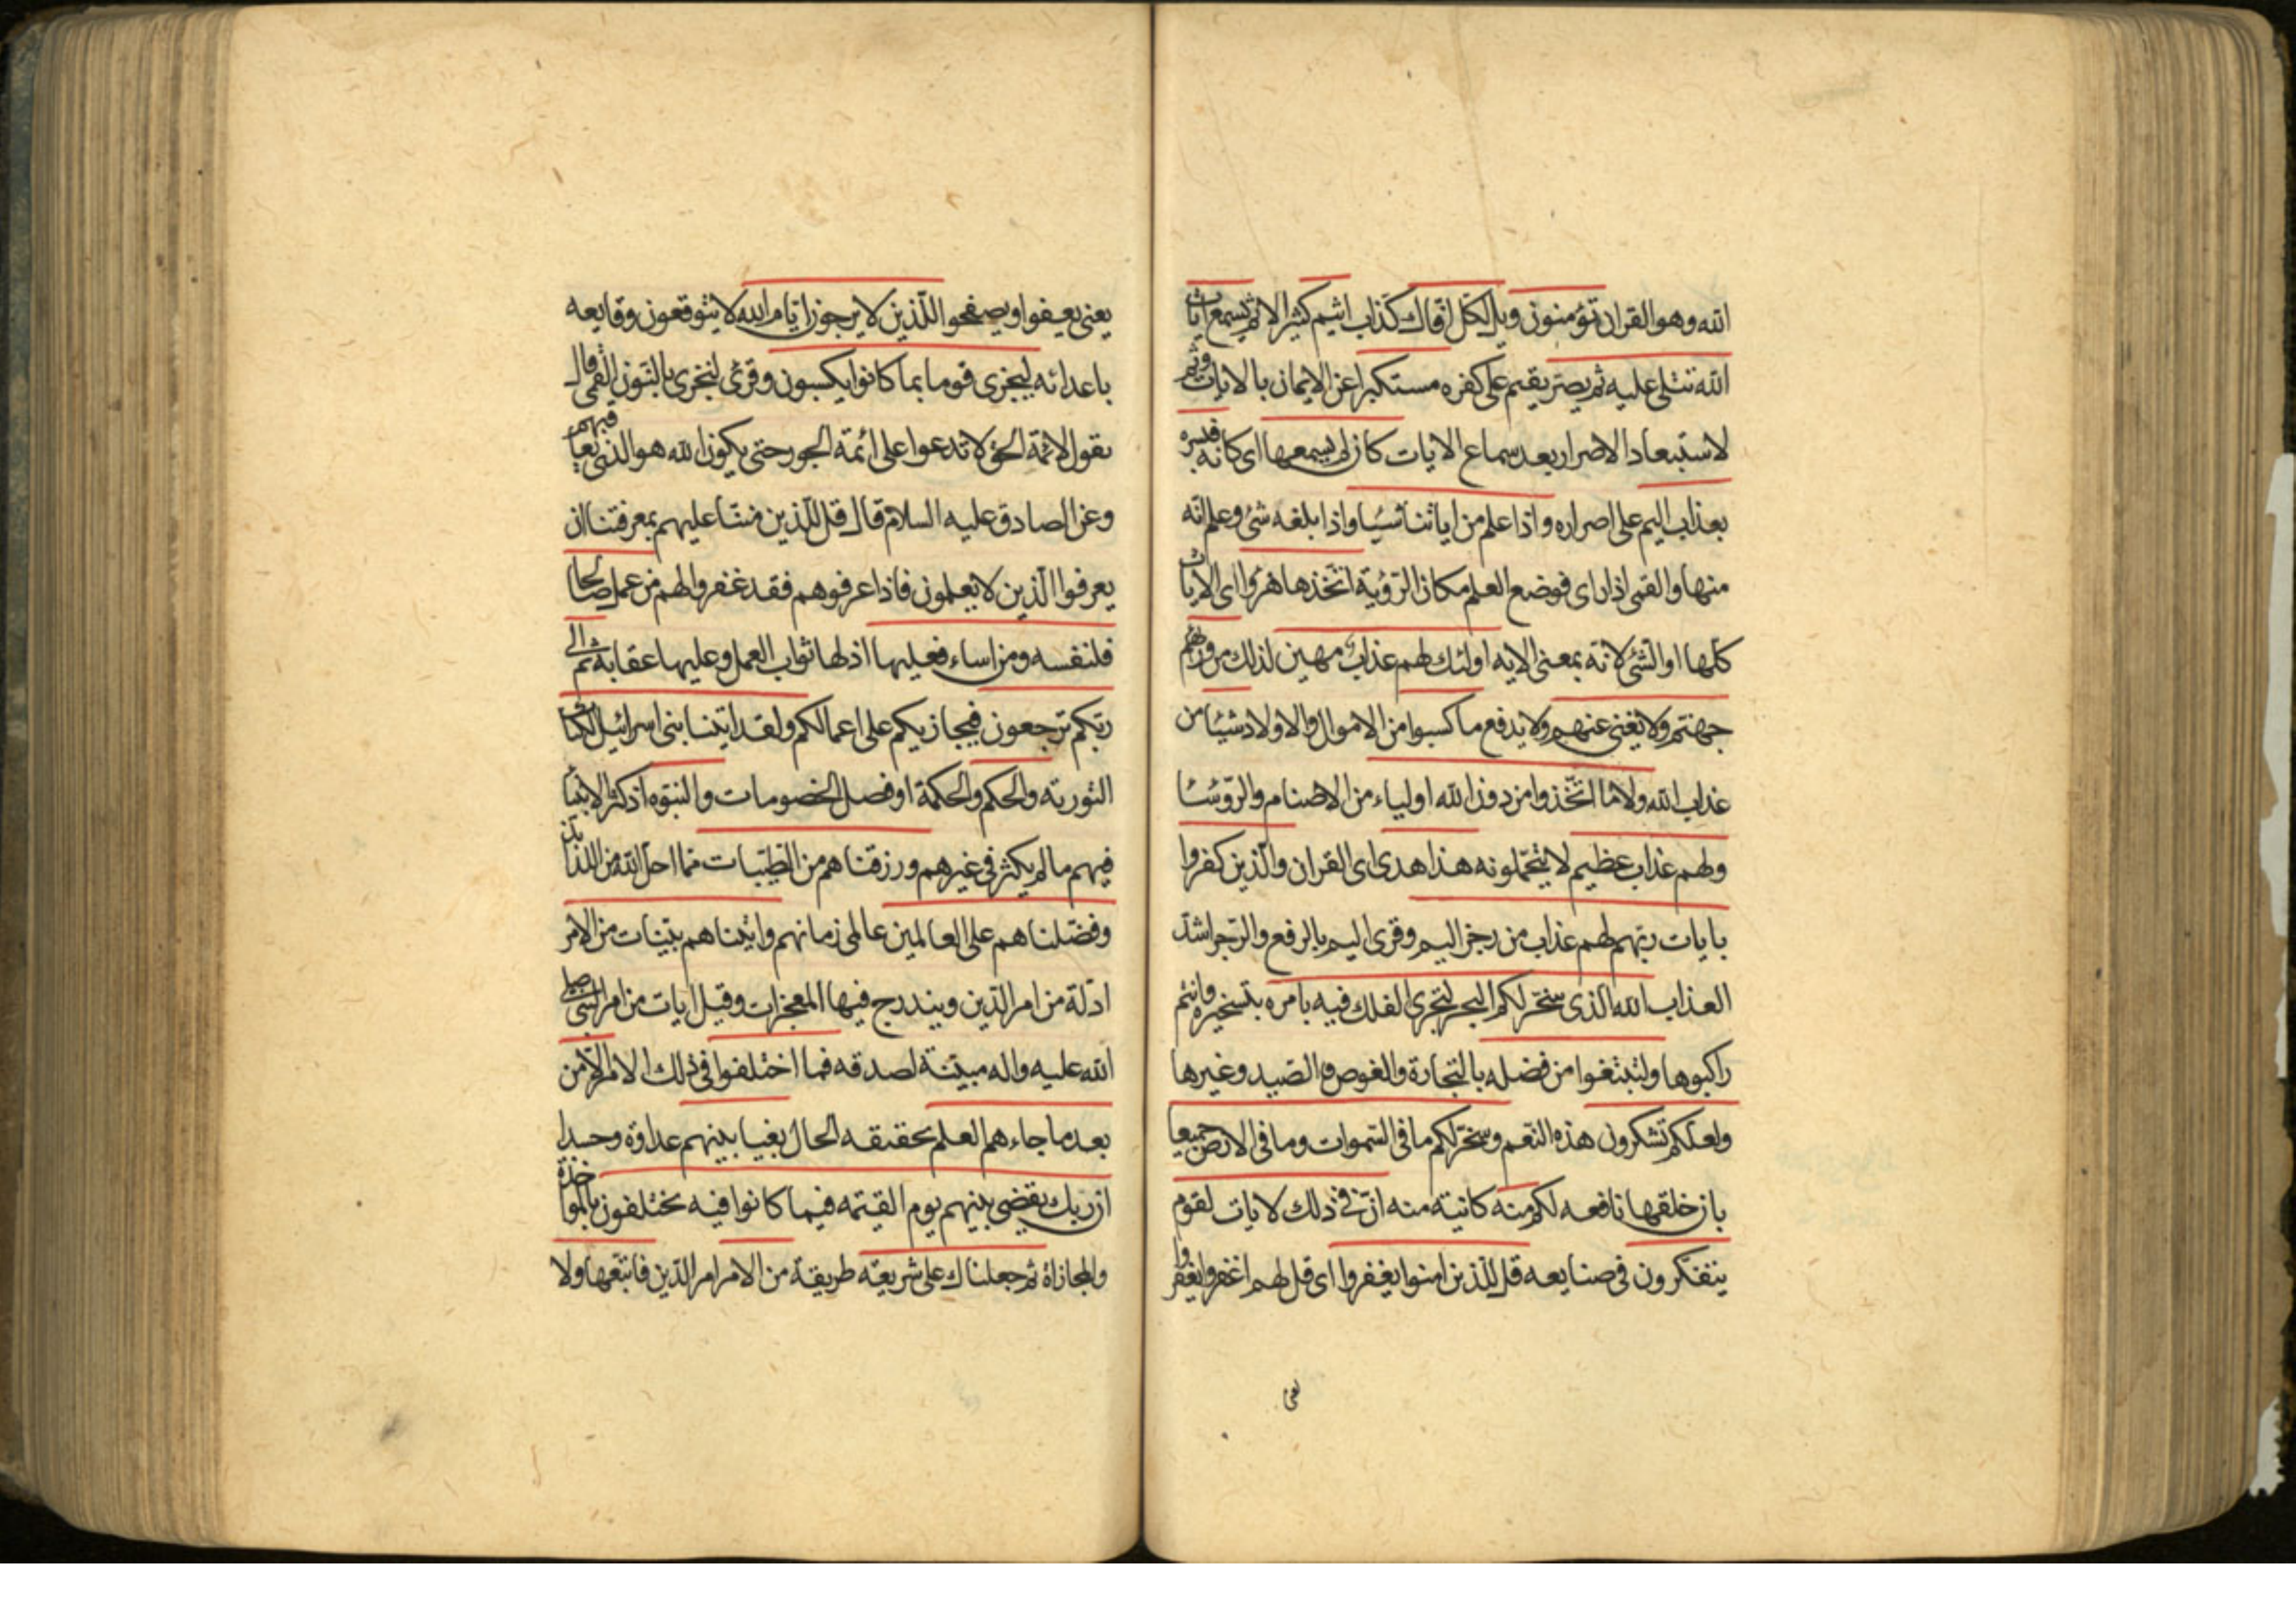 الله وهو القران تؤمنون ويل لكل افاك كذاب اثيم كثير الاثم يسمع ايات
الله تتلى عليه ثم يصر يقيم على كفره مستكبرا عن الايمان بالايات وثم
لاستبعاد الاصرار بعد سماع الايات كان لم يسمعها اى كانه فبشره
بعذاب اليم على اصراره واذا علم من اياتنا شيئا واذا بلغه شئ وعلم انه
منها والقمى اذا راى فوضع العلم مكان الرؤية اتخذها هزوا اى الايات
كلها او الشئ لانه بمعنى الايه اولئك لهم عذاب مهين لذلك من ورائهم
جهنم ولا يغنى عنهم ولا يدفع ما كسبوا من الاموال والاولاد شيئا من
عذاب الله ولا ما اتخذوا من دون الله اولياء من الاصنام والرؤسا
ولهم عذاب عظيم لا يتحملونه هذا هدى اى القران والذين كفروا
بايات ربهم لهم عذاب من رجز اليم وقرى اليم بالرفع والرجز اشد
العذاب الله الذى سخر لكم البحر لتجرى الفلك فيه بامره بتسخيره وانتم
راكبوها ولتبتغوا من فضله بالتجارة والغوص والصيد وغيرها
ولعلكم تشكرون هذه النعم وسخر لكم ما فى السموات وما فى الارض جميعا
بان خلقها نافعه لكم منه كانية منه ان فى ذلك لايات لقوم
يتفكرون فى صنايعه قل للذين امنوا يغفروا اى قل لهم اغفروا يغفروا
يعنى
يعنى يعفوا ويصفحوا للذين لا يرجون ايام الله لا يتوقعون وقايعه
باعدائه ليجزى قوما بما كانوا يكسبون وقرئ لنجزى بالنون القمى قال
يقول لائمة الحق لا تدعوا على ائمة الجور حتى يكون الله هو الذى يعاقبهم
وعن الصادق عليه السلام قال قل للذين مننا عليهم بمعرفتنا ان
يعرفوا الذين لا يعلمون فاذا عرفوهم فقد غفروا لهم من عمل صالحا
فلنفسه ومن اساء فعليها اذ لها ثواب العمل وعليها عقابه ثم الى
ربكم ترجعون فيجازيكم على اعمالكم ولقد اتينا بنى اسرائيل الكتاب
التورية والحكم والحكمة او فصل الخصومات والنبوه اذ كثر الانبيا
فيهم ما لم يكثر فى غيرهم ورزقناهم من الطيبات مما احل الله من اللذايذ
وفضلناهم على العالمين عالمى زمانهم واتيناهم بينات من الامر
ادلة من امر الدين ويندرج فيها المعجزات وقيل ايات من امر النبى صلى
الله عليه واله مبينة لصدقه فما اختلفوا فى ذلك الامر الا من
بعد ما جاءهم العلم بحقيقه الحال بغيا بينهم عداوة وحسدا
ان ربك يقضى بينهم يوم القيمه فيما كانوا فيه يختلفون بالمواخذة
والمجازاة ثم جعلناك على شريعه طريقة من الامر امر الدين فاتبعها ولا